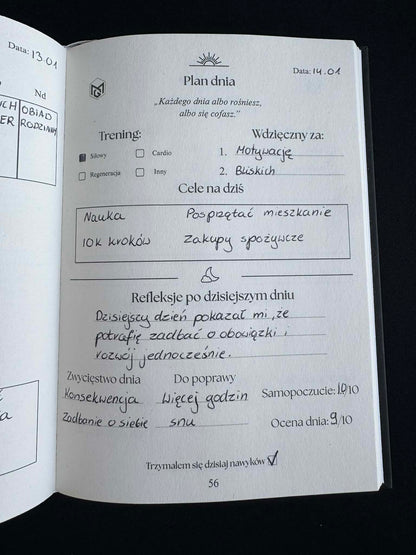 Data: 13.01
Nd
OBIAD
RODZINNY
Plan dnia
Data: 14.01
„Każdego dnia albo rośniesz,
albo się cofasz.”
Trening:
Siłowy
Cardio
Regeneracja
Inny
Wdzięczny za:
1. Motywację
2. Bliskich
Cele na dziś
Nauka
Posprzątać mieszkanie
10k kroków
Zakupy spożywcze
Refleksje po dzisiejszym dniu
Dzisiejszy dzień pokazał mi, że
potrafię zadbać o obowiązki i
rozwój jednocześnie.
Zwycięstwo dnia
Do poprawy
Konsekwencja
Więcej godzin
Samopoczucie: 10/10
Zadbanie o siebie
snu
Ocena dnia: 9/10
Trzymałem się dzisiaj nawyków
56